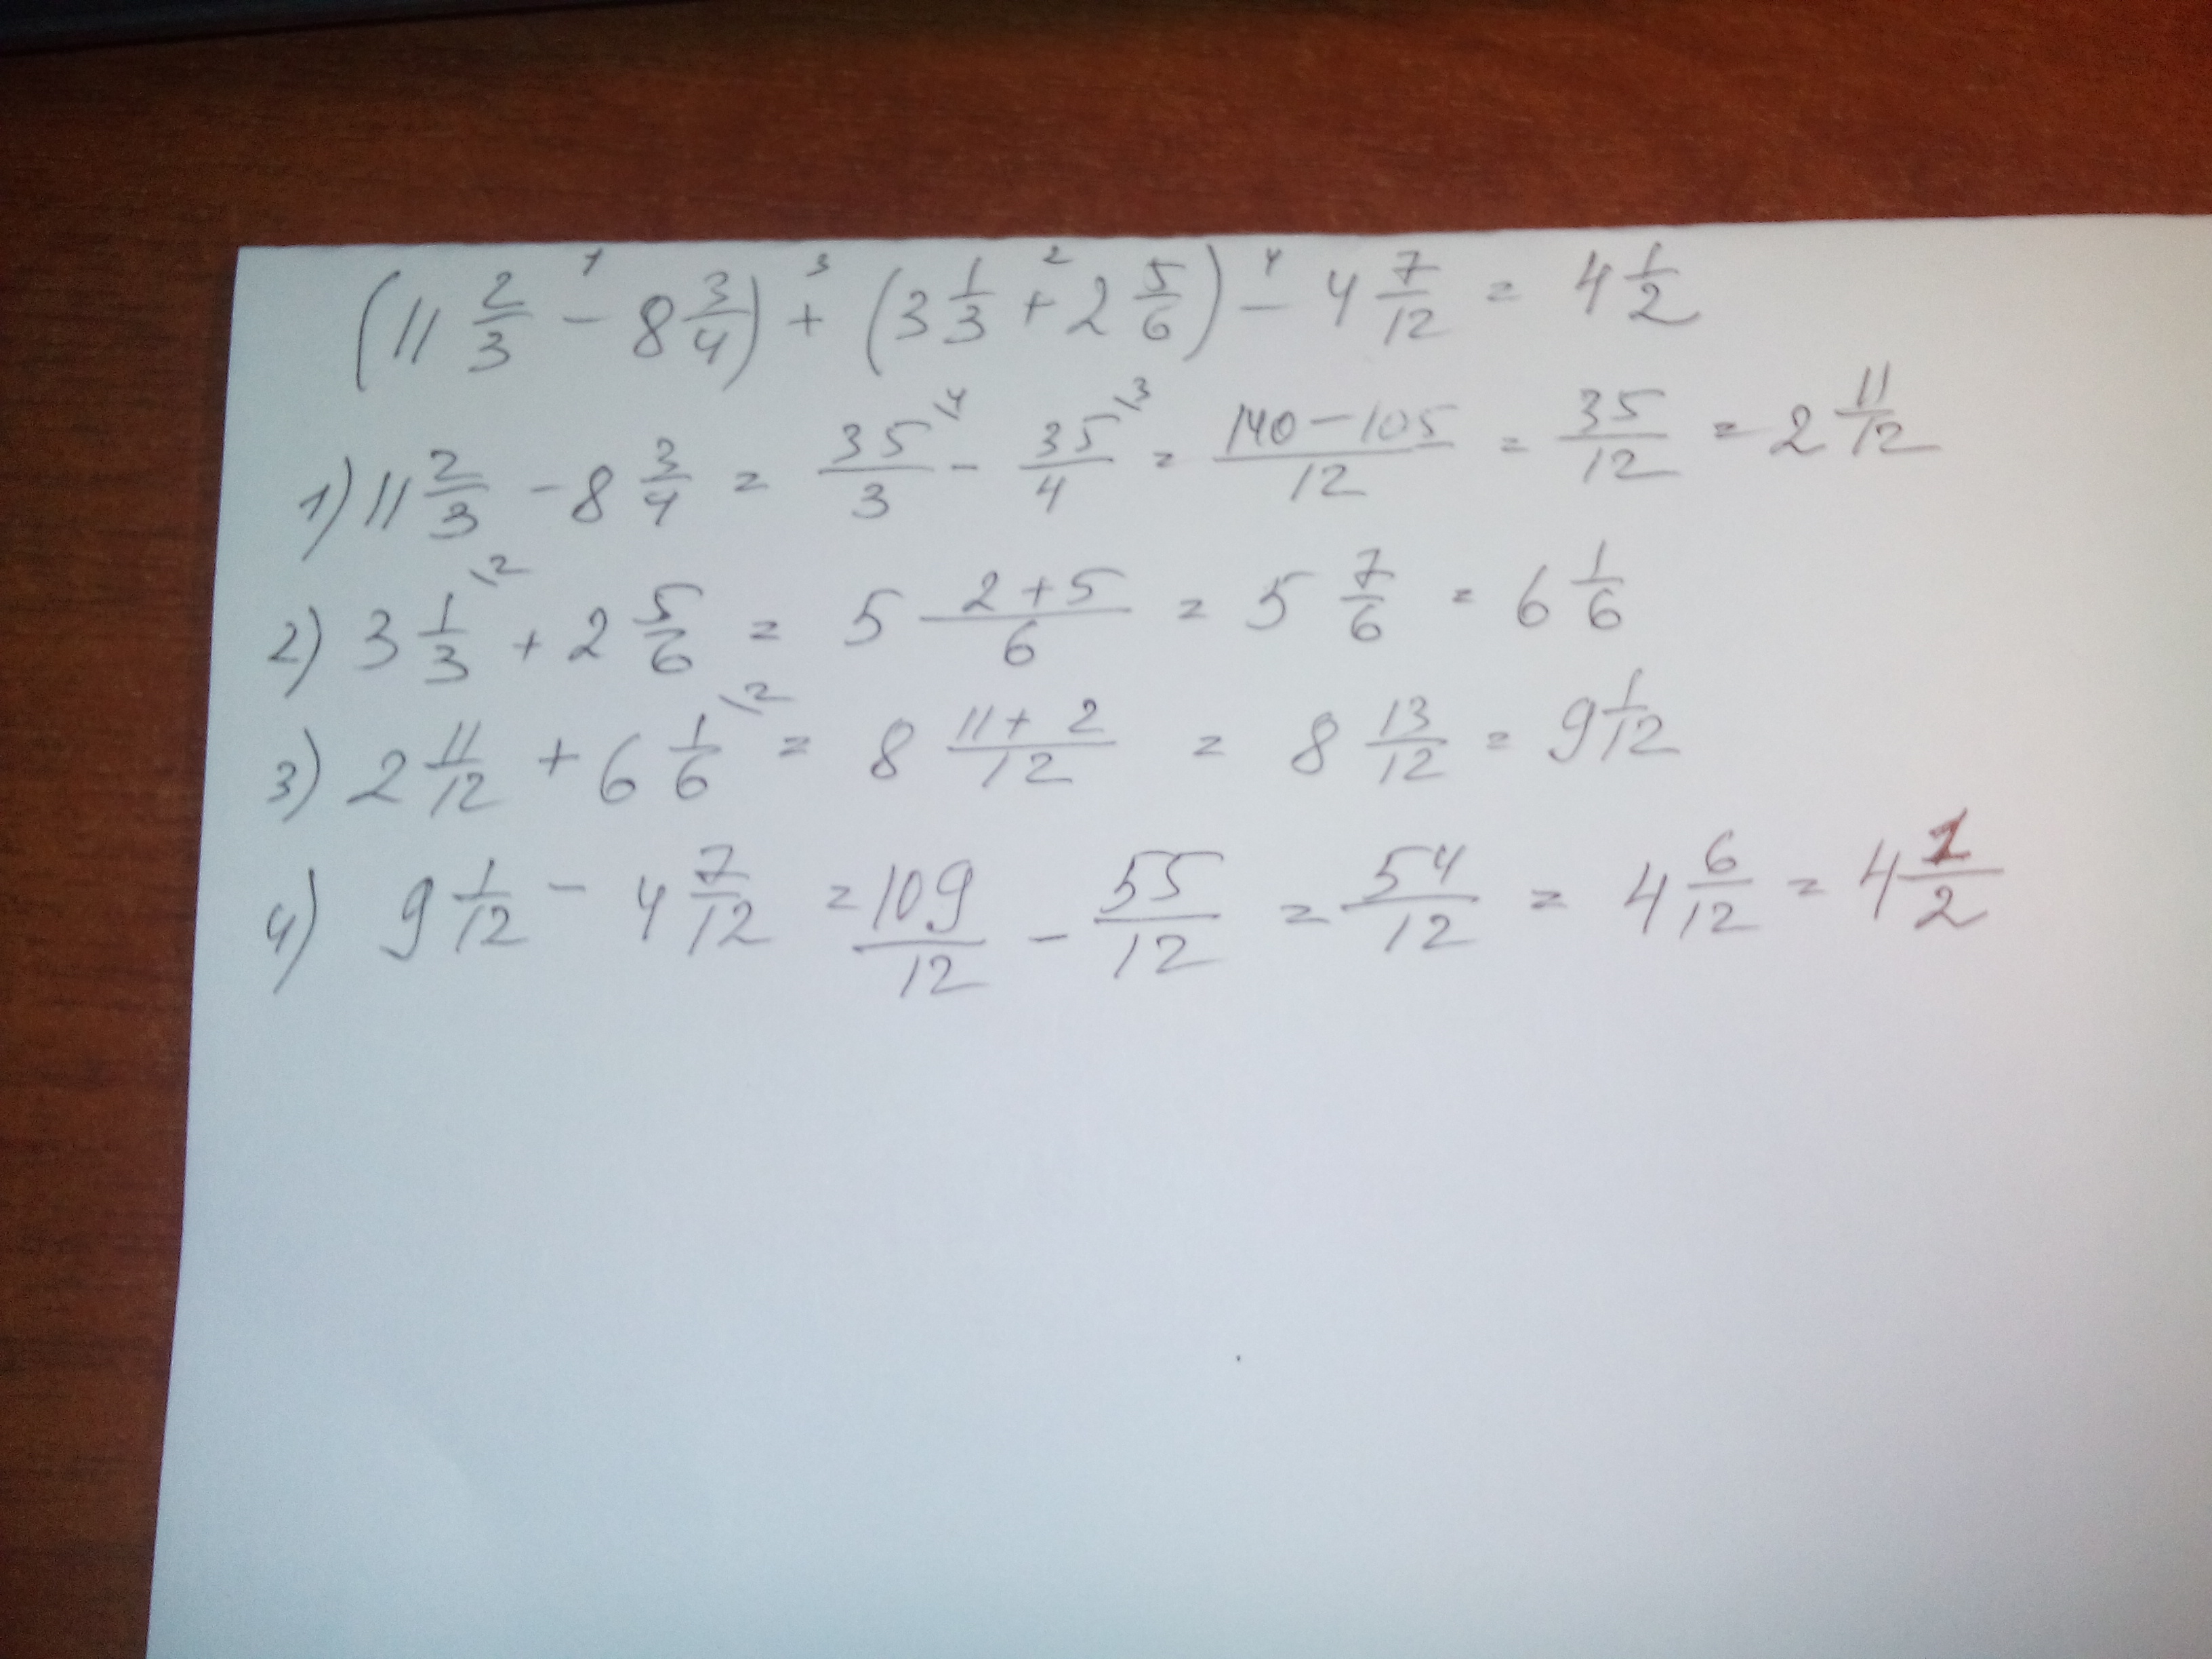 (11 2/3 - 8 3/4) + (3 1/3 + 2 5/6) - 4 7/12 = 4 1/2
1) 11 2/3 - 8 3/4 = 35/3 \4 - 35/4 \3 = (140-105)/12 = 35/12 = 2 11/12
2) 3 1/3 \2 + 2 5/6 = 5 (2+5)/6 = 5 7/6 = 6 1/6
3) 2 11/12 + 6 1/6 \2 = 8 (11+2)/12 = 8 13/12 = 9 1/12
4) 9 1/12 - 4 7/12 = 109/12 - 55/12 = 54/12 = 4 6/12 = 4 1/2